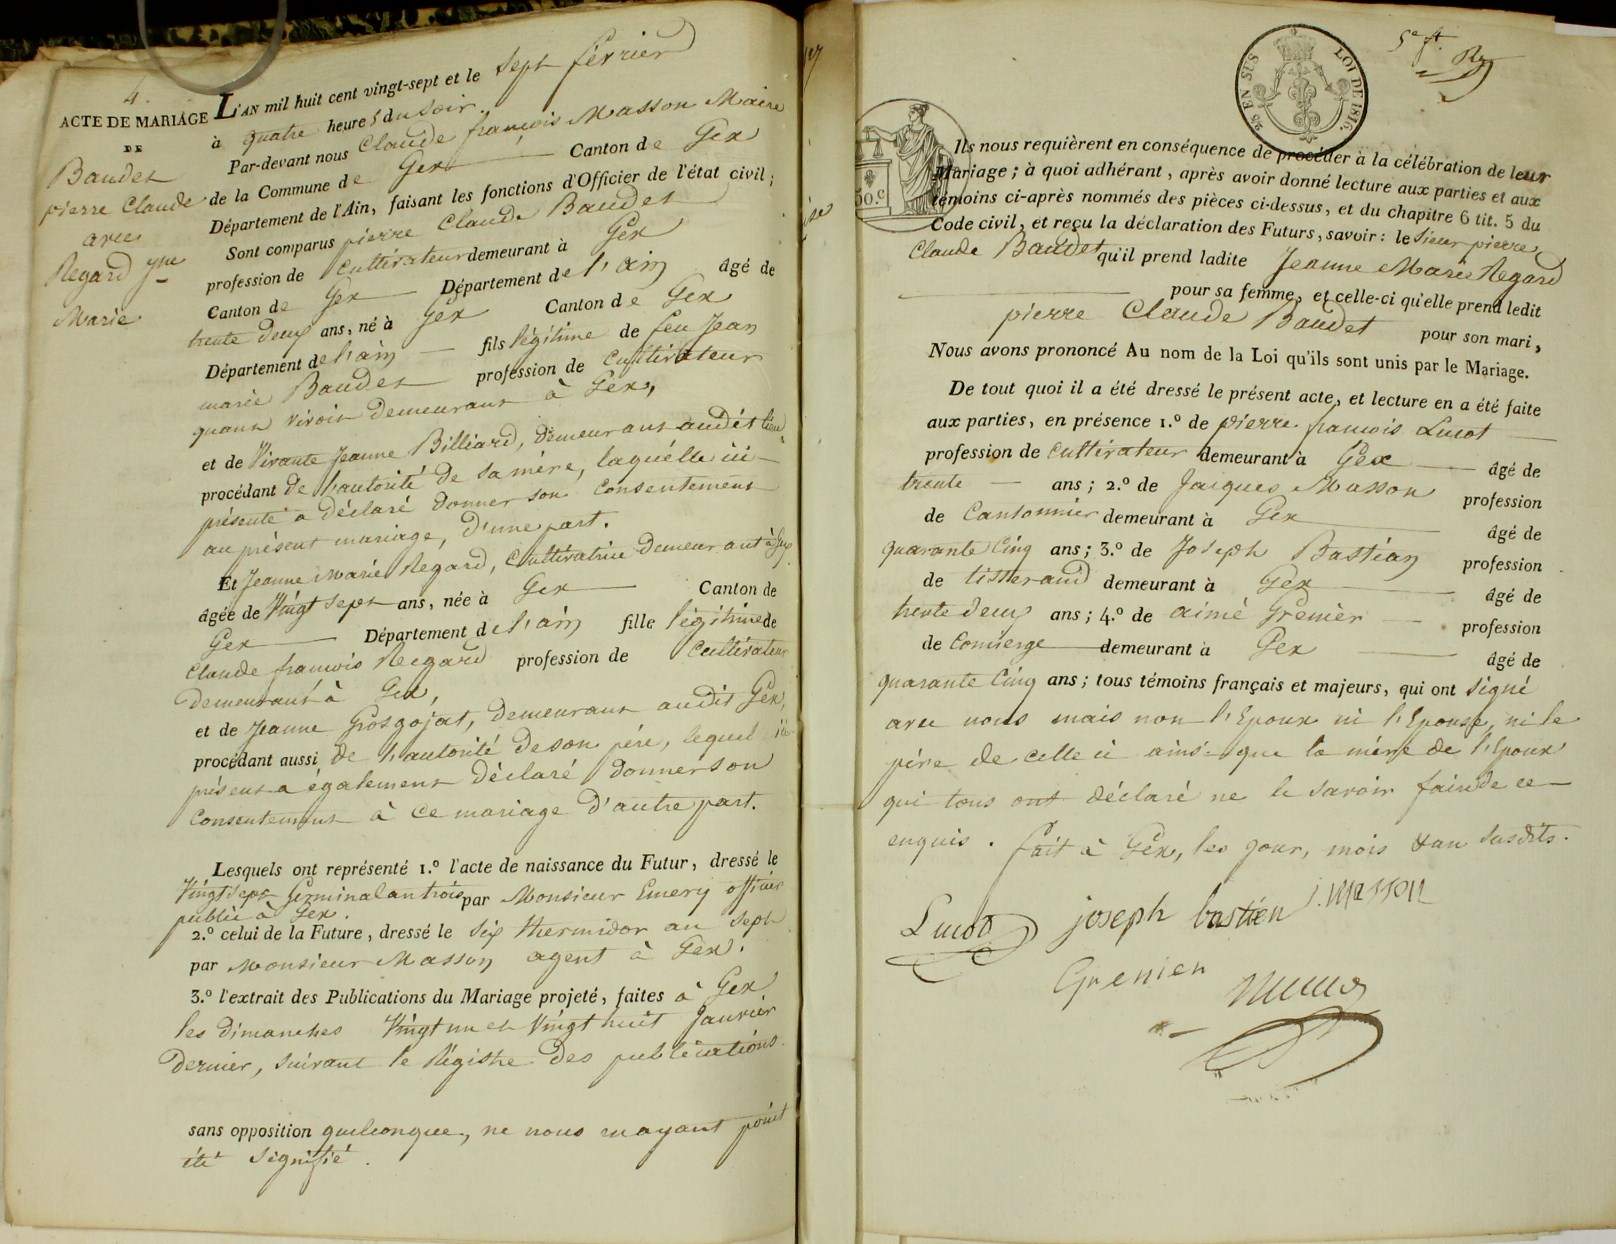 4.
ACTE DE MARIAGE
DE
Baudet
pierre Claude
avec
Regard jne
Marie
L'AN mil huit cent vingt-sept et le sept février
à quatre heures du soir.
Par-devant nous Claude françois Masson Maire
de la Commune de Gex Canton de Gex
Département de l'Ain, faisant les fonctions d'Officier de l'état civil;
Sont comparus pierre Claude Baudet
profession de Cultivateur demeurant à Gex
Canton de Gex Département de l'ain âgé de
trente deux ans, né à Gex Canton de Gex
Département de l'ain fils légitime de feu Jean
marie Baudet profession de cultivateur
quant vivoit demeurant à Gex,
et de Vivante Jeanne Billiard, demeurant audit lieu
procédant de l'autorité de sa mère, laquelle ici
présente a déclaré donner son consentement
au présent mariage, d'une part.
Et Jeanne Marie Regard, Cultivatrice demeurant à Gex
âgée de Vingt sept ans, née à Gex Canton de
Gex Département de l'ain fille légitime de
Claude françois Regard profession de Cultivateur
demeurant à Gex,
et de Jeanne Grosgojat, demeurant audit Gex,
procédant aussi de l'autorité de son père, lequel ici
présent a également déclaré donner son
consentement à ce mariage d'autre part.
Lesquels ont représenté 1.º l'acte de naissance du Futur, dressé le
Vingt sept Germinal an trois par Monsieur Emery officier
public à Gex.
2.º celui de la Future, dressé le six thermidor an sept
par Monsieur Masson agent à Gex.
3.º l'extrait des Publications du Mariage projeté, faites à Gex
les dimanches Vingt un et Vingt huit Janvier
dernier, suivant le Régistre des publications
sans opposition quelconque, ne nous en ayant point
été signifié.
25 EN SUS
LOI DE 1816.
50.c
Ils nous requièrent en conséquence de procéder à la célébration de leur
Mariage; à quoi adhérant, après avoir donné lecture aux parties et aux
témoins ci-après nommés des pièces ci-dessus, et du chapitre 6 tit. 5 du
Code civil, et reçu la déclaration des Futurs, savoir: le Sieur pierre
Claude Baudet qu'il prend ladite Jeanne Marie Regard
pour sa femme, et celle-ci qu'elle prend ledit
pierre Claude Baudet pour son mari,
Nous avons prononcé Au nom de la Loi qu'ils sont unis par le Mariage.
De tout quoi il a été dressé le présent acte, et lecture en a été faite
aux parties, en présence 1.º de pierre françois Lucot
profession de cultivateur demeurant à Gex âgé de
trente ans; 2.º de Jaiques Masson profession
de Cantonnier demeurant à Gex âgé de
quarante Cinq ans; 3.º de Joseph Bastian profession
de tisserand demeurant à Gex âgé de
trente deux ans; 4.º de aimé Grenier profession
de Concierge demeurant à Gex âgé de
quarante Cinq ans; tous témoins français et majeurs, qui ont signé
avec nous mais non l'Epoux ni l'Epouse, ni le
père de celle ci ainsi que la mère de l'Epoux
qui tous ont déclaré ne le savoir faire de ce
enquis. fait à Gex, les jour, mois & an susdits.
Lucot joseph bastien J. masson
Grenier